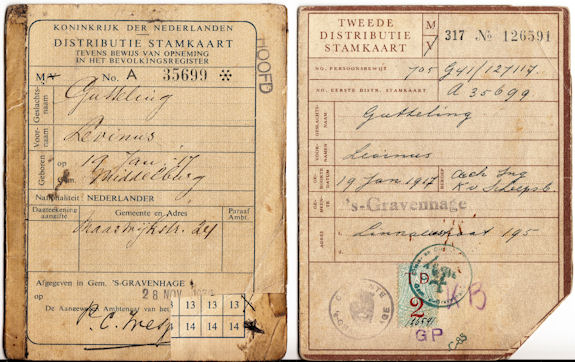 KONINKRIJK DER NEDERLANDEN
DISTRIBUTIE STAMKAART
TEVENS BEWIJS VAN OPNEMING
IN HET BEVOLKINGSREGISTER
HOOFD
M No. A 35699
Geslachtsnaam Gutteling
Voornaam Levinus
Geboren op 19 Jan '17
Gem. Middelburg
Nationaliteit: NEDERLANDER
Dagteekening aangifte Gemeente en Adres Paraaf Ambt.
24
Afgegeven in Gem. 'S-GRAVENHAGE
op 28 NOV 1939
De Aangewezen Ambtenaar van het
P. C.
13 13 13
14 14 14
TWEEDE
DISTRIBUTIE
STAMKAART
M
V
317 No 126591
NO. PERSOONSBEWIJS 705 G41/127117
NO. EERSTE DISTR. STAMKAART A 35699
GESLACHTSNAAM Gutteling
VOORNAMEN Levinus
GEBOORTEDATUM 19 Jan 1917
BEROEP
GEMEENTE 's-Gravenhage
ADRES 1. 195
2.
2
GP